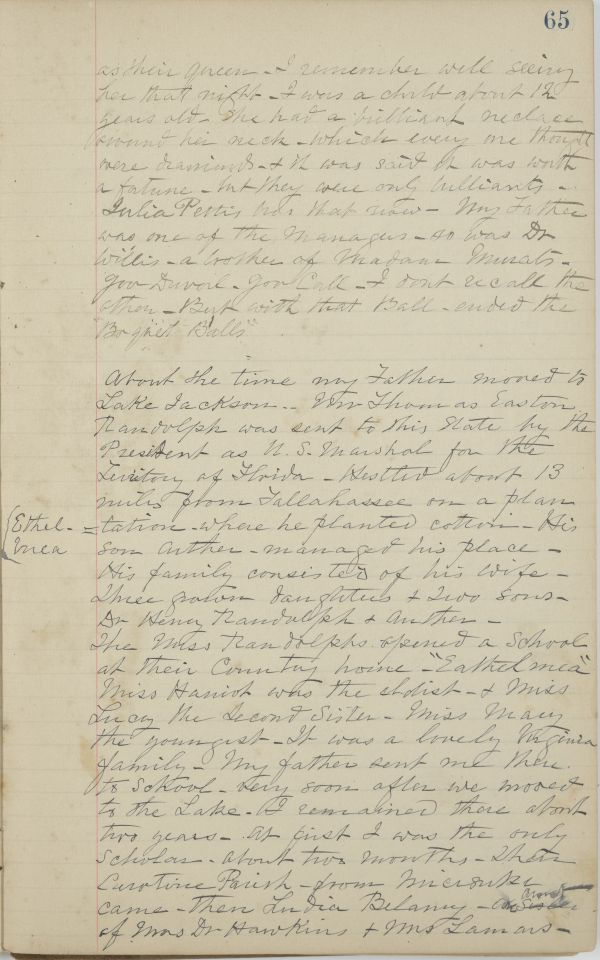 65
as their queen - I remember well seeing
her that night - I was a child about 12
years old. She had a brilliant neclace
around her neck - which every one thought
were diamonds - & it was said it was worth
a fortune - but they were only brilliants -
Julia Pettis has that now - My Father
was one of the Managers - so was Dr
Willis - a brother of Madame Murats -
Gov Duval - Gov Call - I dont recall the
others - But with that Ball - ended the
"Boquet Balls"
About the time my Father moved to
Lake Jackson - Mr Thomas Easton
Randolph was sent to this State by the
President as U.S. Marshal for the
Teritory of Florida - He settled about 13
miles from Tallahassee on a plan
= tation - where he planted cotton - His
{Ethel-
mea
son Arther - managed his place -
His family consisted of his wife -
three grown daughters & two sons -
Dr Henry Randolph & Arther -
The Miss Randolphs opened a School
at their Country home - "Eathelmea"
Miss Hariot was the eldist - & Miss
Lucy the Second Sister - Miss Mary
the youngest - It was a lovely Virginia
family - My father sent me there
to School - very soon after we moved
to the Lake - I remained there about
two years - At first I was the only
Scholar - about two months - then
Parish - from
came - then Ludia Belamy - Sister
of Mrs Dr Hawkins & Mrs Lamars -